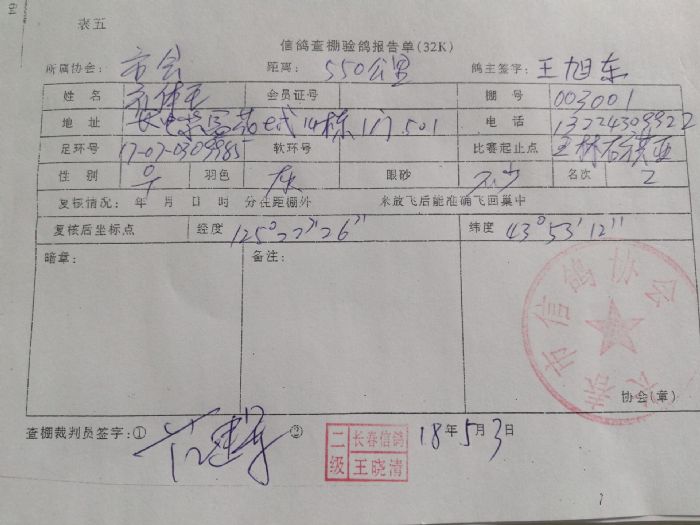 表五
信鸽查棚验鸽报告单(32K)
所属协会: 市会 距离: 550公里 鸽主签字: 王旭东
姓 名 会员证号 棚 号 003001
地 址 14栋 1门 501 电 话
足环号 17-07-0309985 软环号 比赛起止点
性 别 羽色 灰 眼砂 名次 2
复核情况: 年 月 日 时 分在距棚外 米放飞后能准确飞回巢中
复核后坐标点 经度 125°22′26″ 纬度 43°53′12″
暗章: 备注:
长春市信鸽协会
协会(章)
查棚裁判员签字:① ②
二级 长春信鸽 王晓清
18年5月3日